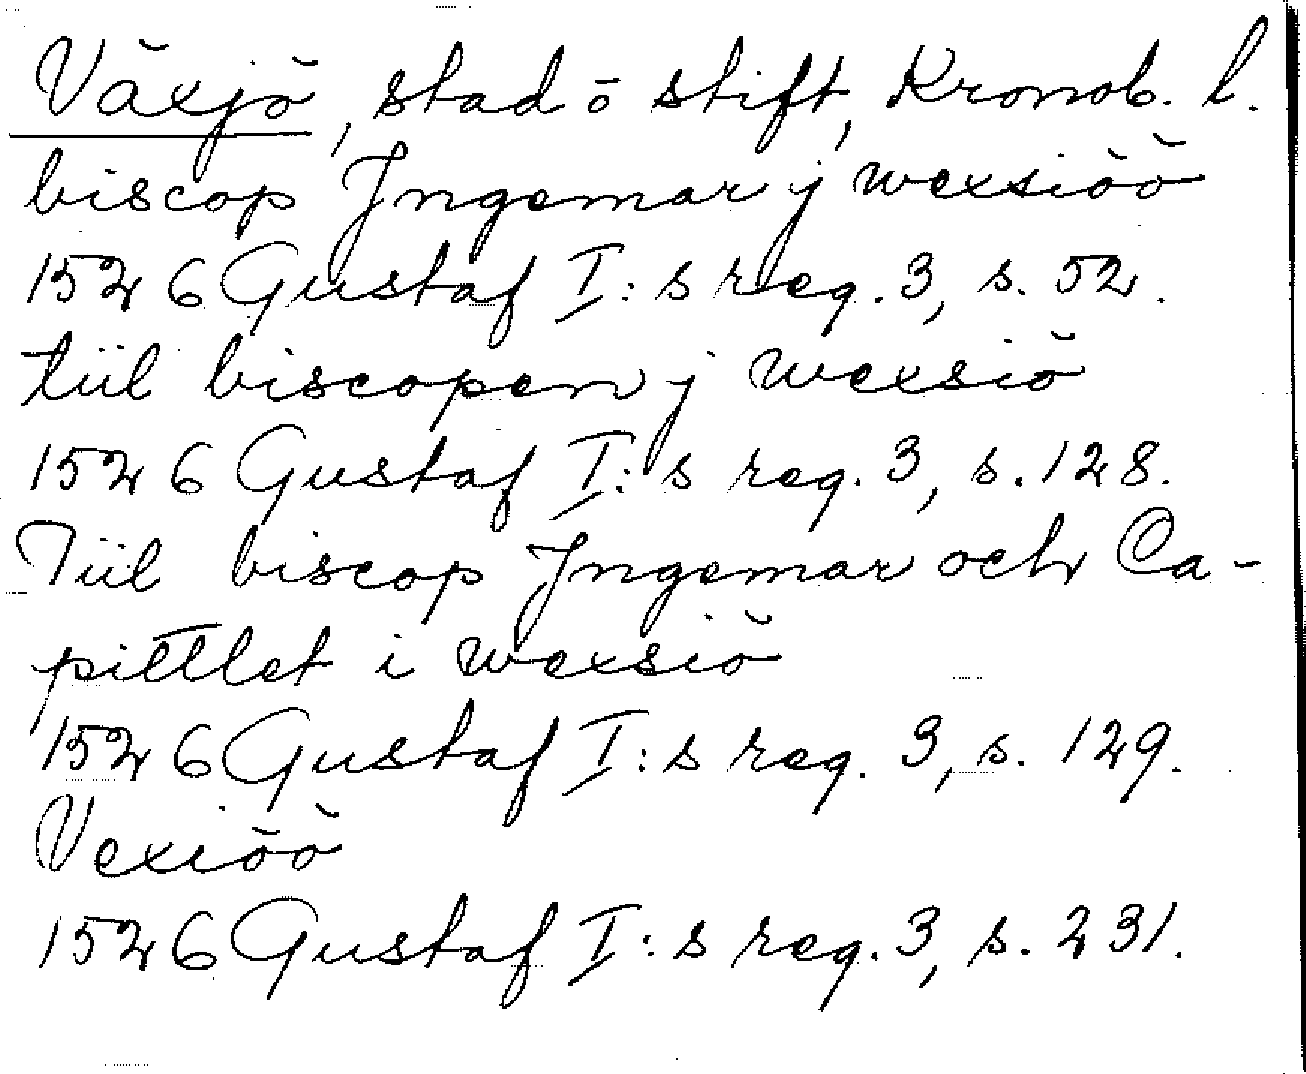 Växjö, stad o stift, Kronob. l.
biscop Jngemar j wexsiöö
1526 Gustaf I:s reg. 3, s. 52.
tiil biscopen j wexsiö
1526 Gustaf I:s reg. 3, s. 128.
Tiil biscop Jngemar och Ca-
pittlet i wexsiö
1526 Gustaf I:s reg. 3, s. 129.
Vexiöö
1526 Gustaf I:s reg. 3, s. 231.